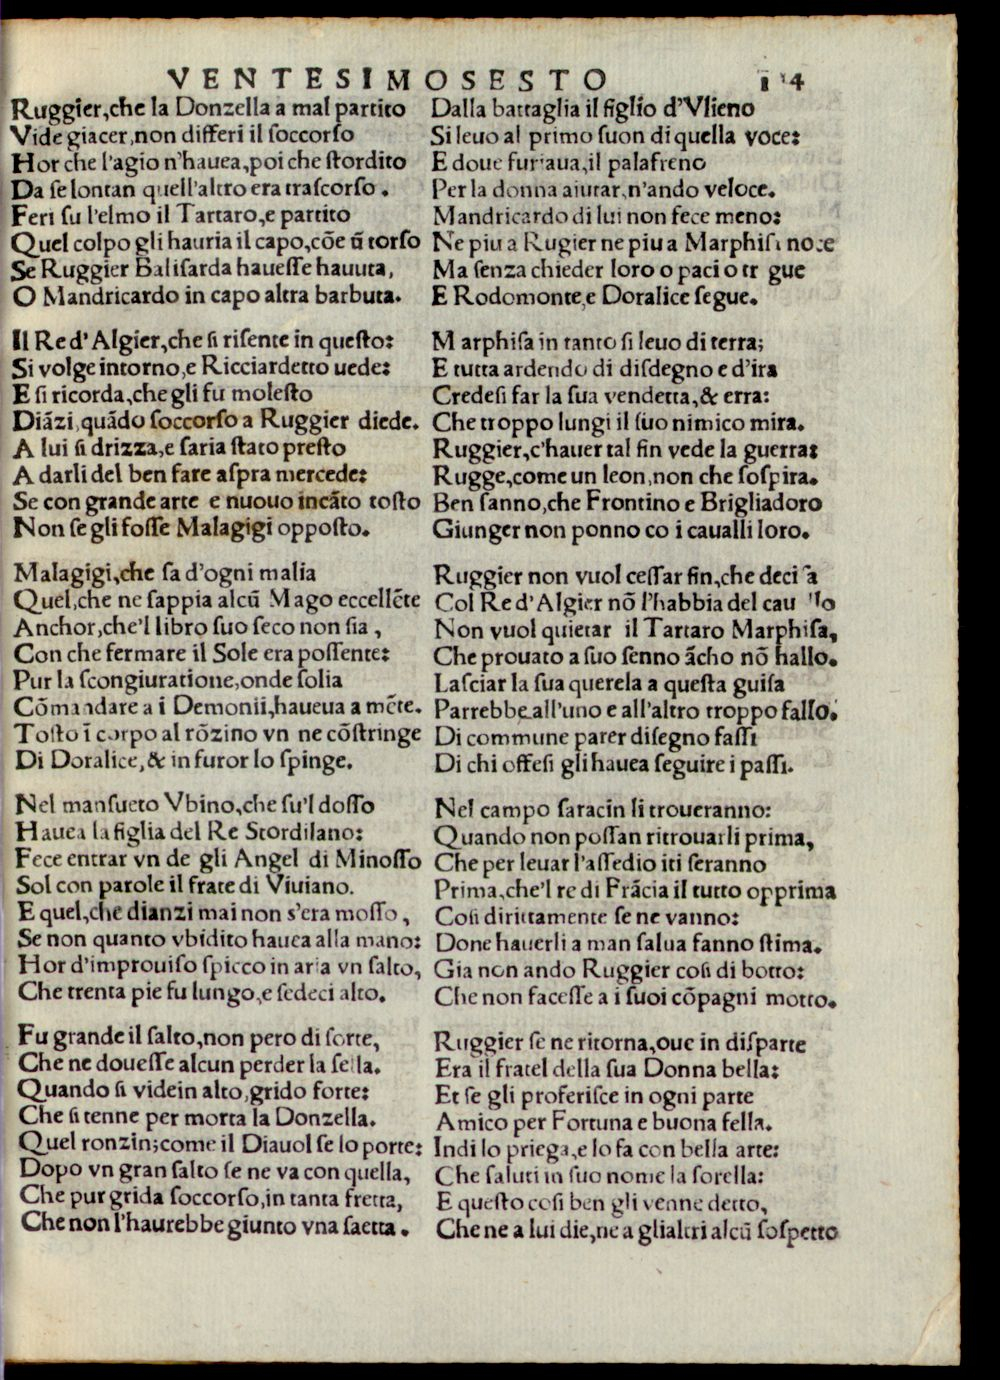 VENTESIMOSESTO
Ruggier,che la Donzella a mal partito
Vide giacer,non differi il ſoccorſo
Hor che l'agio n'hauea,poi che ſtordito
Da ſe lontan quell'altro era traſcorſo .
Feri ſu l'elmo il Tartaro,e partito
Quel colpo gli hauria il capo,cõe ũ torſo
Se Ruggier Baliſarda haueſſe hauuta,
O Mandricardo in capo altra barbuta.
Il Re d'Algier,che ſi riſente in queſto:
Si volge intorno,e Ricciardetto uede:
E ſi ricorda,che gli fu moleſto
Diãzi,quãdo ſoccorſo a Ruggier diede.
A lui ſi drizza,e ſaria ſtato preſto
A darli del ben fare aſpra mercede:
Se con grande arte e nuouo incãto toſto
Non ſe gli foſſe Malagigi oppoſto.
Malagigi,che ſa d'ogni malia
Quel,che ne ſappia alcũ Mago eccellẽte
Anchor,che'l libro ſuo ſeco non ſia ,
Con che fermare il Sole era poſſente:
Pur la ſcongiuratione,onde ſolia
Cõmandare a i Demonii,haueua a mẽte.
Toſto ĩ corpo al rõzino vn ne cõſtringe
Di Doralice,& in furor lo ſpinge.
Nel manſueto Vbino,che ſu'l doſſo
Hauea la figlia del Re Stordilano:
Fece entrar vn de gli Angel di Minoſſo
Sol con parole il frate di Viuiano.
E quel,che dianzi mai non s'era moſſo ,
Se non quanto vbidito hauea alla mano:
Hor d'improuiſo ſpicco in aria vn ſalto,
Che trenta pie fu lungo,e ſedeci alto.
Fu grande il ſalto,non pero di ſorte,
Che ne doueſſe alcun perder la ſella.
Quando ſi vide in alto,grido forte:
Che ſi tenne per morta la Donzella.
Quel ronzin;come il Diauol ſe lo porte:
Dopo vn gran ſalto ſe ne va con quella,
Che pur grida ſoccorſo,in tanta fretta,
Che non l'haurebbe giunto vna ſaetta .
Dalla battaglia il figlio d'Vlieno
Si leuo al primo ſuon di quella voce:
E doue furiaua,il palafreno
Per la donna aiutar,n'ando veloce.
Mandricardo di lui non fece meno:
Ne piu a Rugier ne piu a Marphiſa noce
Ma ſenza chieder loro o paci o tr gue
E Rodomonte,e Doralice ſegue.
Marphiſa in tanto ſi leuo di terra;
E tutta ardendo di diſdegno e d'ira
Credeſi far la ſua vendetta,& erra:
Che troppo lungi il ſuo nimico mira.
Ruggier,c'hauer tal fin vede la guerra:
Rugge,come un leon,non che ſoſpira.
Ben ſanno,che Frontino e Brigliadoro
Giunger non ponno co i caualli loro.
Ruggier non vuol ceſſar fin,che deciſa
Col Re d'Algier nõ l'habbia del cauallo
Non vuol quietar il Tartaro Marphiſa,
Che prouato a ſuo ſenno ãcho nõ hallo.
Laſciar la ſua querela a queſta guiſa
Parrebbe all'uno e all'altro troppo fallo.
Di commune parer diſegno faſſi
Di chi offeſi gli hauea ſeguire i paſſi.
Nel campo ſaracin li troueranno:
Quando non poſſan ritrouarli prima,
Che per leuar l'aſſedio iti ſeranno
Prima,che'l re di Frãcia il tutto opprima
Coſi dirittamente ſe ne vanno:
Done hauerli a man ſalua fanno ſtima.
Gia non ando Ruggier coſi di botto:
Che non faceſſe a i ſuoi cõpagni motto.
Ruggier ſe ne ritorna,oue in diſparte
Era il fratel della ſua Donna bella:
Et ſe gli proferiſce in ogni parte
Amico per Fortuna e buona fella.
Indi lo priega,e lo fa con bella arte:
Che ſaluti in ſuo nome la ſorella:
E queſto coſi ben gli venne detto,
Che ne a lui die,ne a glialtri alcũ ſoſpetto